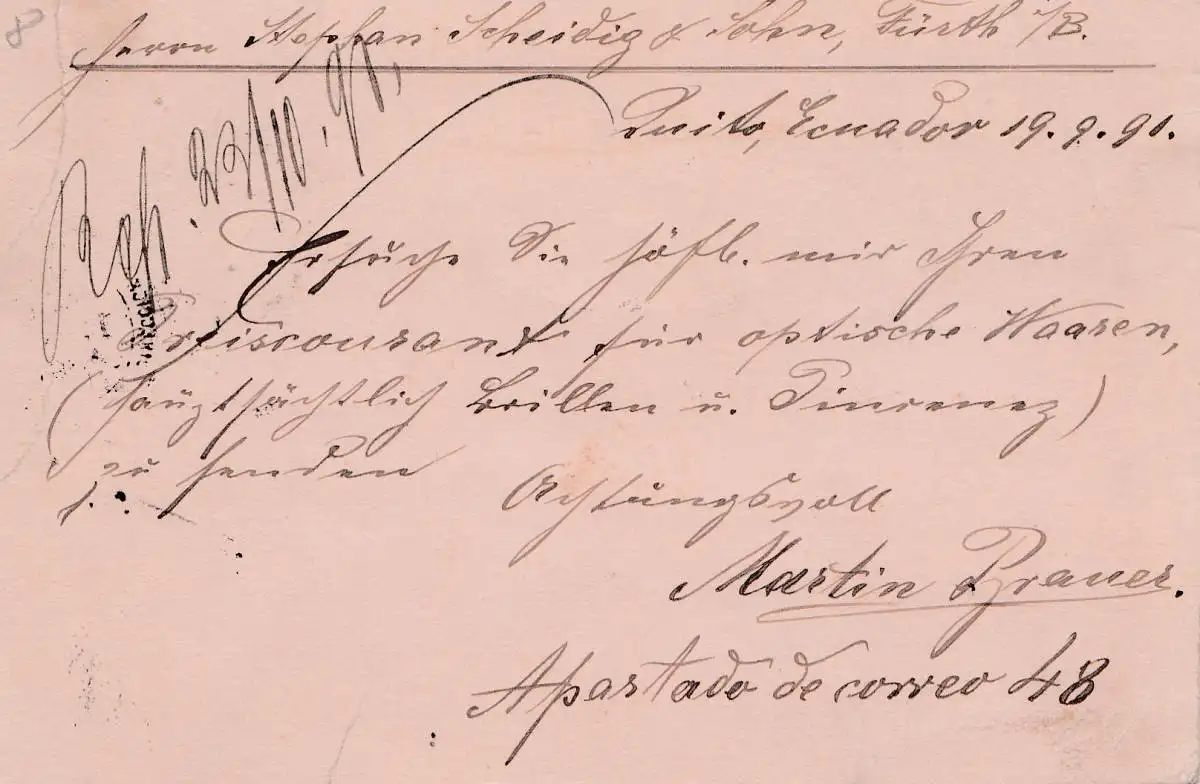 8
Herrn Stephan Scheidig & Sohn, Fürth i/B.
Quito, Ecuador 19. 9. 91.
22/10. 91.
Ersuche Sie höfl. mir Ihren
Preiscourant für optische Waaren,
(hauptsächtlich Brillen u. Pincenez)
zu senden
Achtungsvoll
Martin Brauer.
Apartado de correo 48